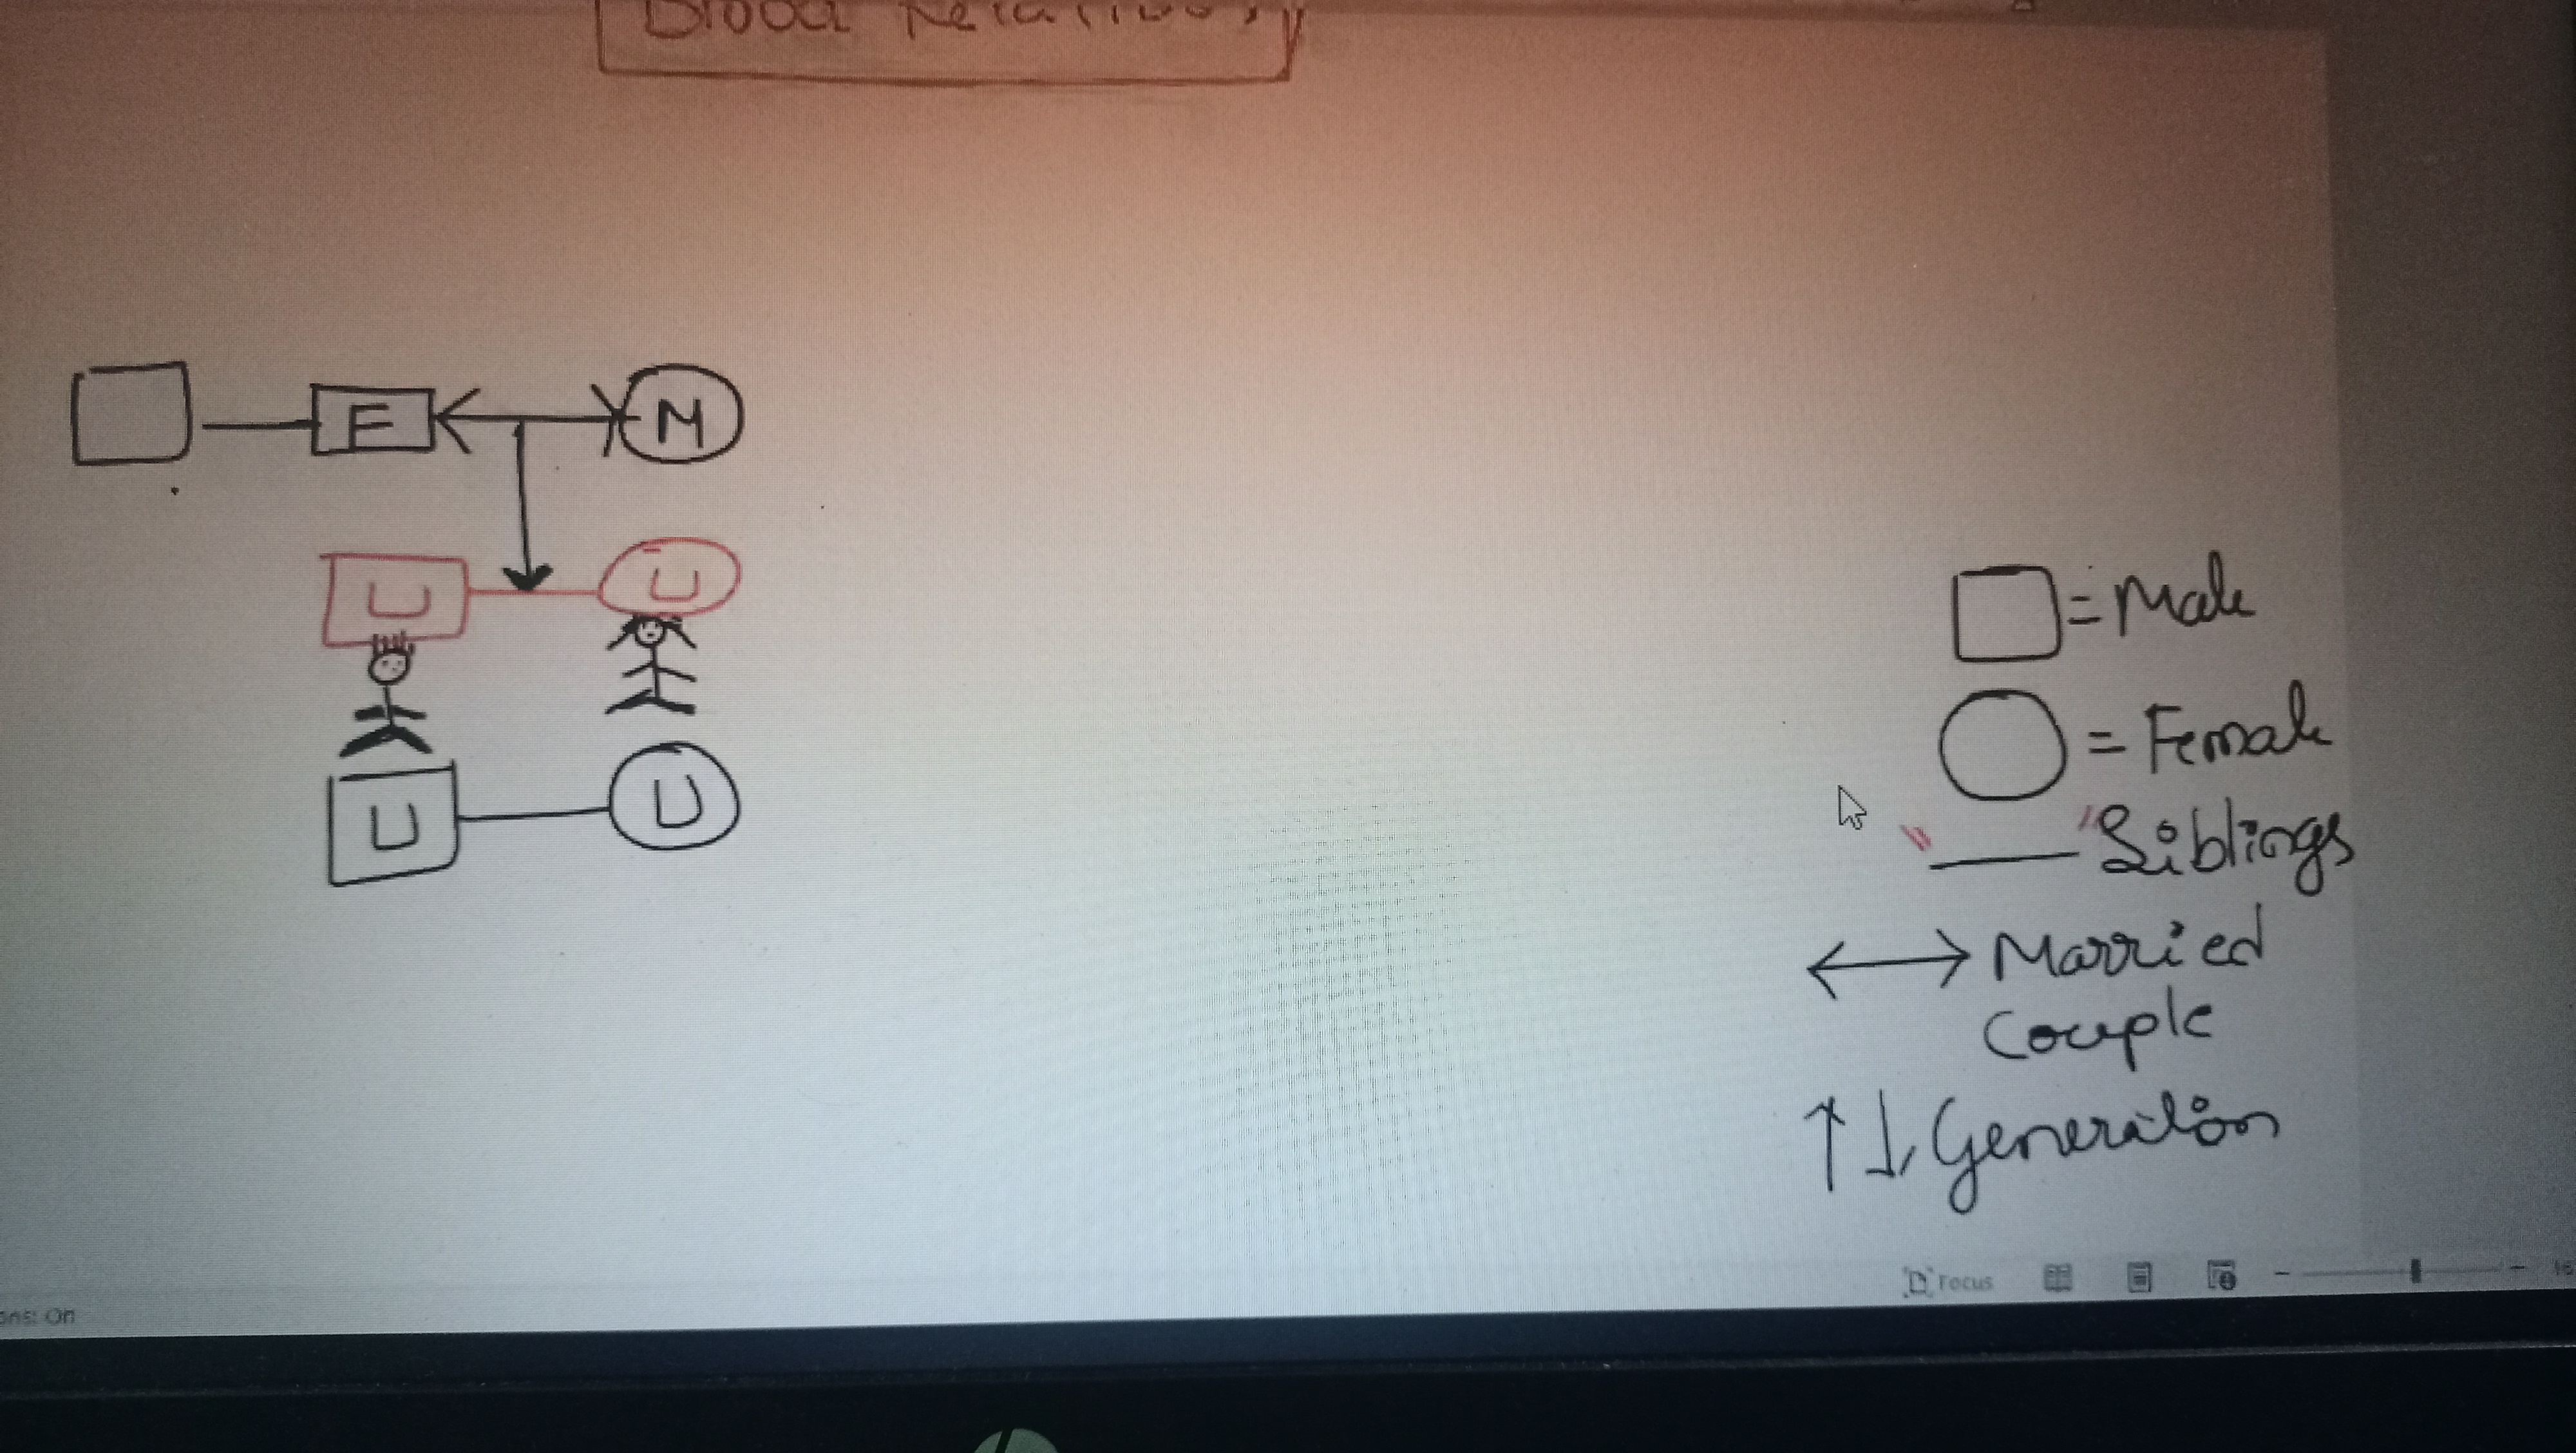 Blood Relations
E M
U U
U U
= Male
= Female
" " Siblings
Married
Couple
Generation
Focus